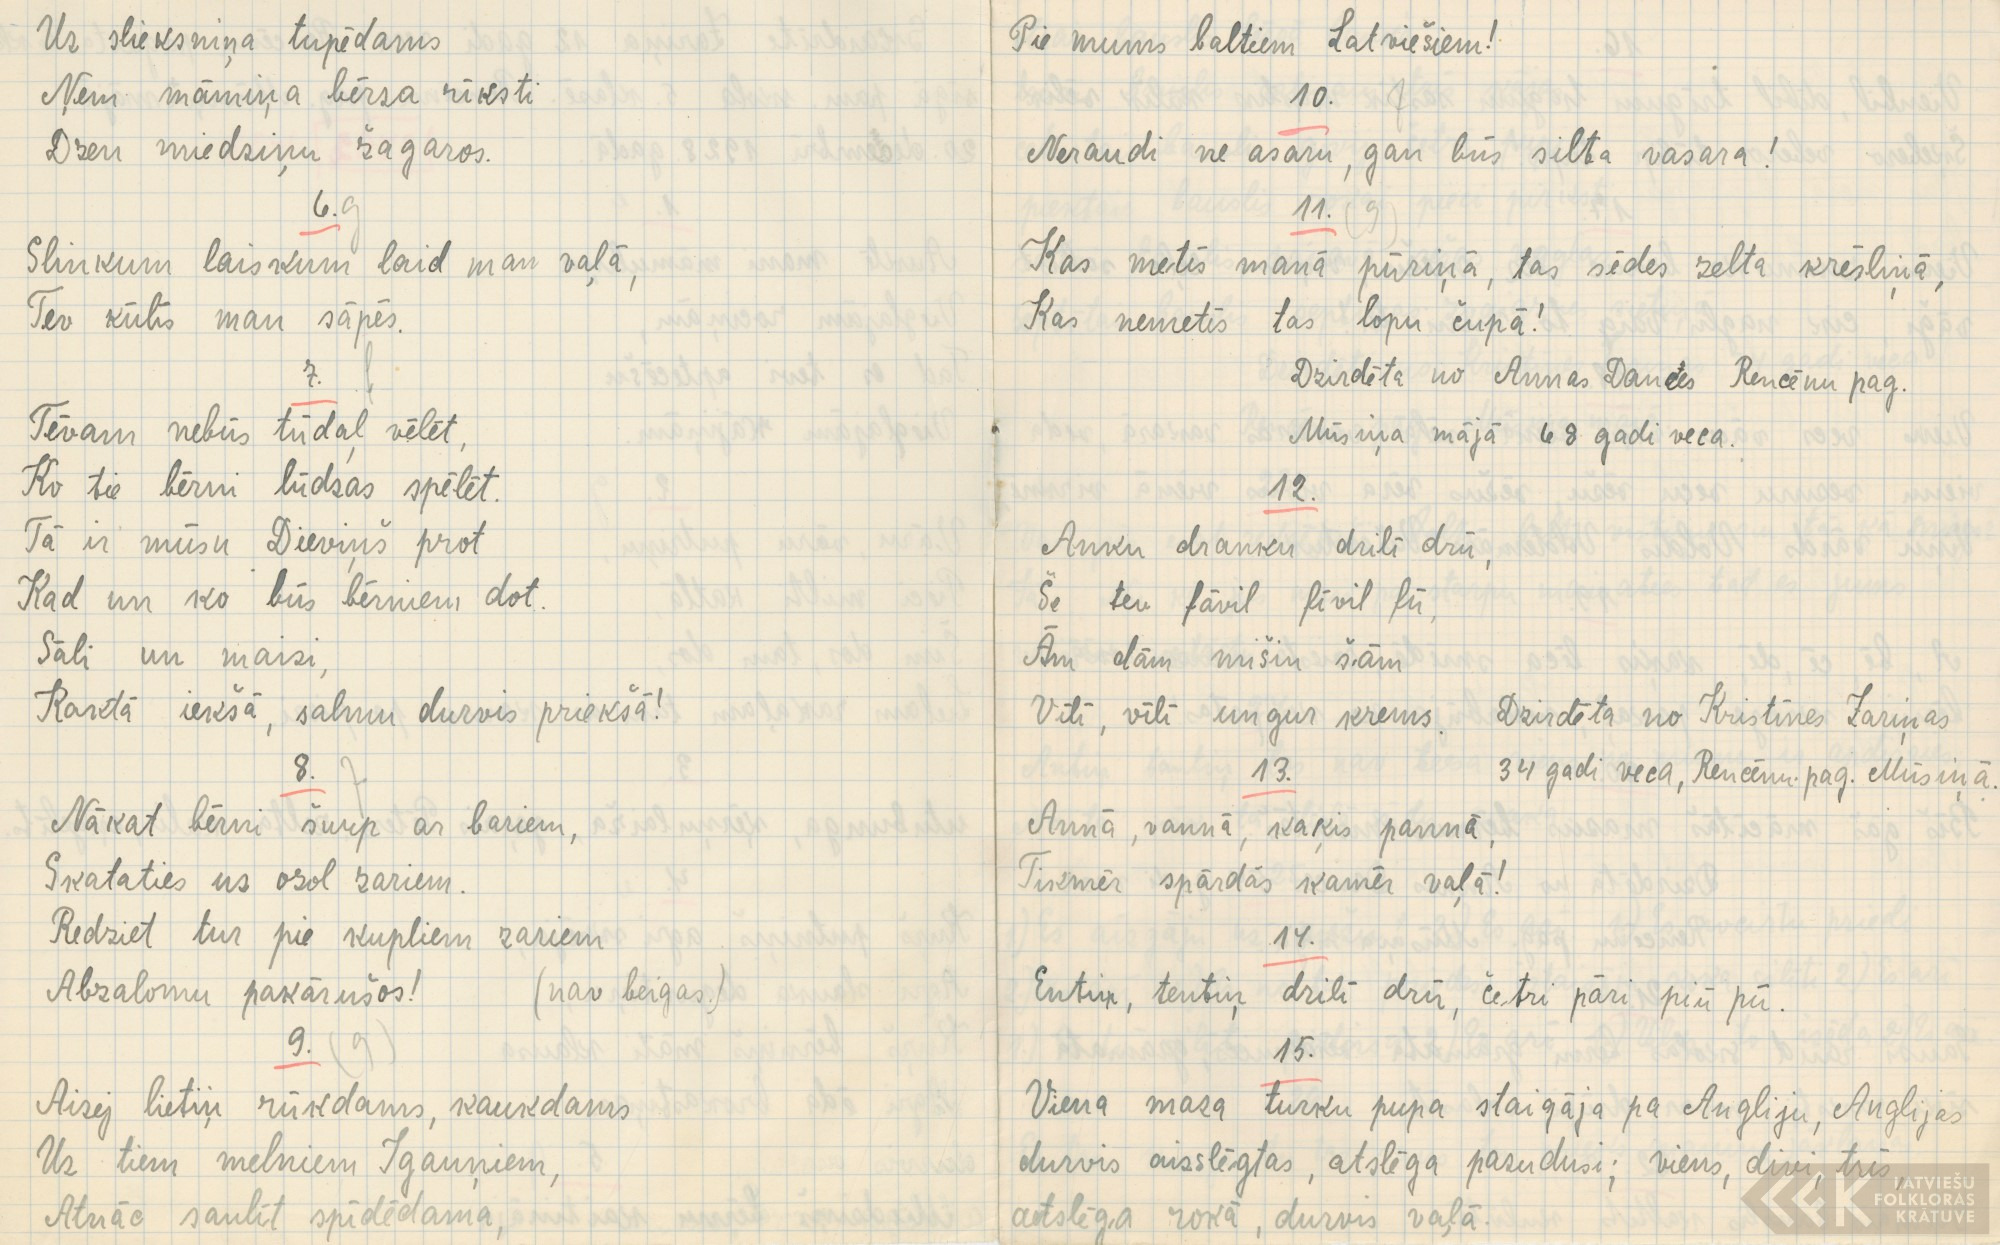 Uz slieksniņa tupēdams
Ņem māmiņa bērza rīksti
Dzen miedziņu žagaros.
6. g
Slinkum laiskum laid man vaļā,
Tev kūlis man sāpēs.
7.
Tēvam nebūs tūdaļ vēlēt,
Ko tie bērni lūdzas spēlēt.
Tā ir mūsu Dieviņš prot
Kad un ko būs bērniem dot.
Sāli un maizi,
Kaktā iekšā, salmu durvis priekšā!
8.
Nākat bērni šurp ar bariem,
Skataties uz ozol zariem.
Redziet tur pie kupliem zariem
Abzalomu pakārušos! (nav beigas.)
9. (g)
Aizej lietiņ rūkdams, kaukdams
Uz tiem melniem Igauņiem,
Atnāc saulīt spīdēdama,
Pie mums baltiem Latviešiem!
10.
Neraudi ne asaru, gan būs silta vasara!
11. (g)
Kas metīs manā pūriņā, tas sēdes zelta krēsliņā,
Kas nemetīs tas lopu čupā!
Dzirdēta no Annas Dandes Rencēnu pag.
Mūsiņa mājā 68 gadi veca.
12.
Anku dranku drilī drū,
Še teu fāvil fīvil fū,
Ām dām mišin šām
Vīlī, vīlī ungur krems. Dzirdēta no Kristīnes Zariņas
34 gadi veca, Rencēnu pag. Mūsiņā.
13.
Annā, vannā, kaķis pannā,
Tikmēr spārdās kamēr vaļā!
14.
Entiņ, tentiņ drilī drū, četri pāri piū pū.
15.
Viena maza turku pupa staigāja pa Angliju, Anglijas
durvis aizslēgtas, atslēga pazudusi; viens, divi, trīs,
atslēga rokā, durvis vaļā.
LATVIEŠU
FOLKLORAS
KRĀTUVE